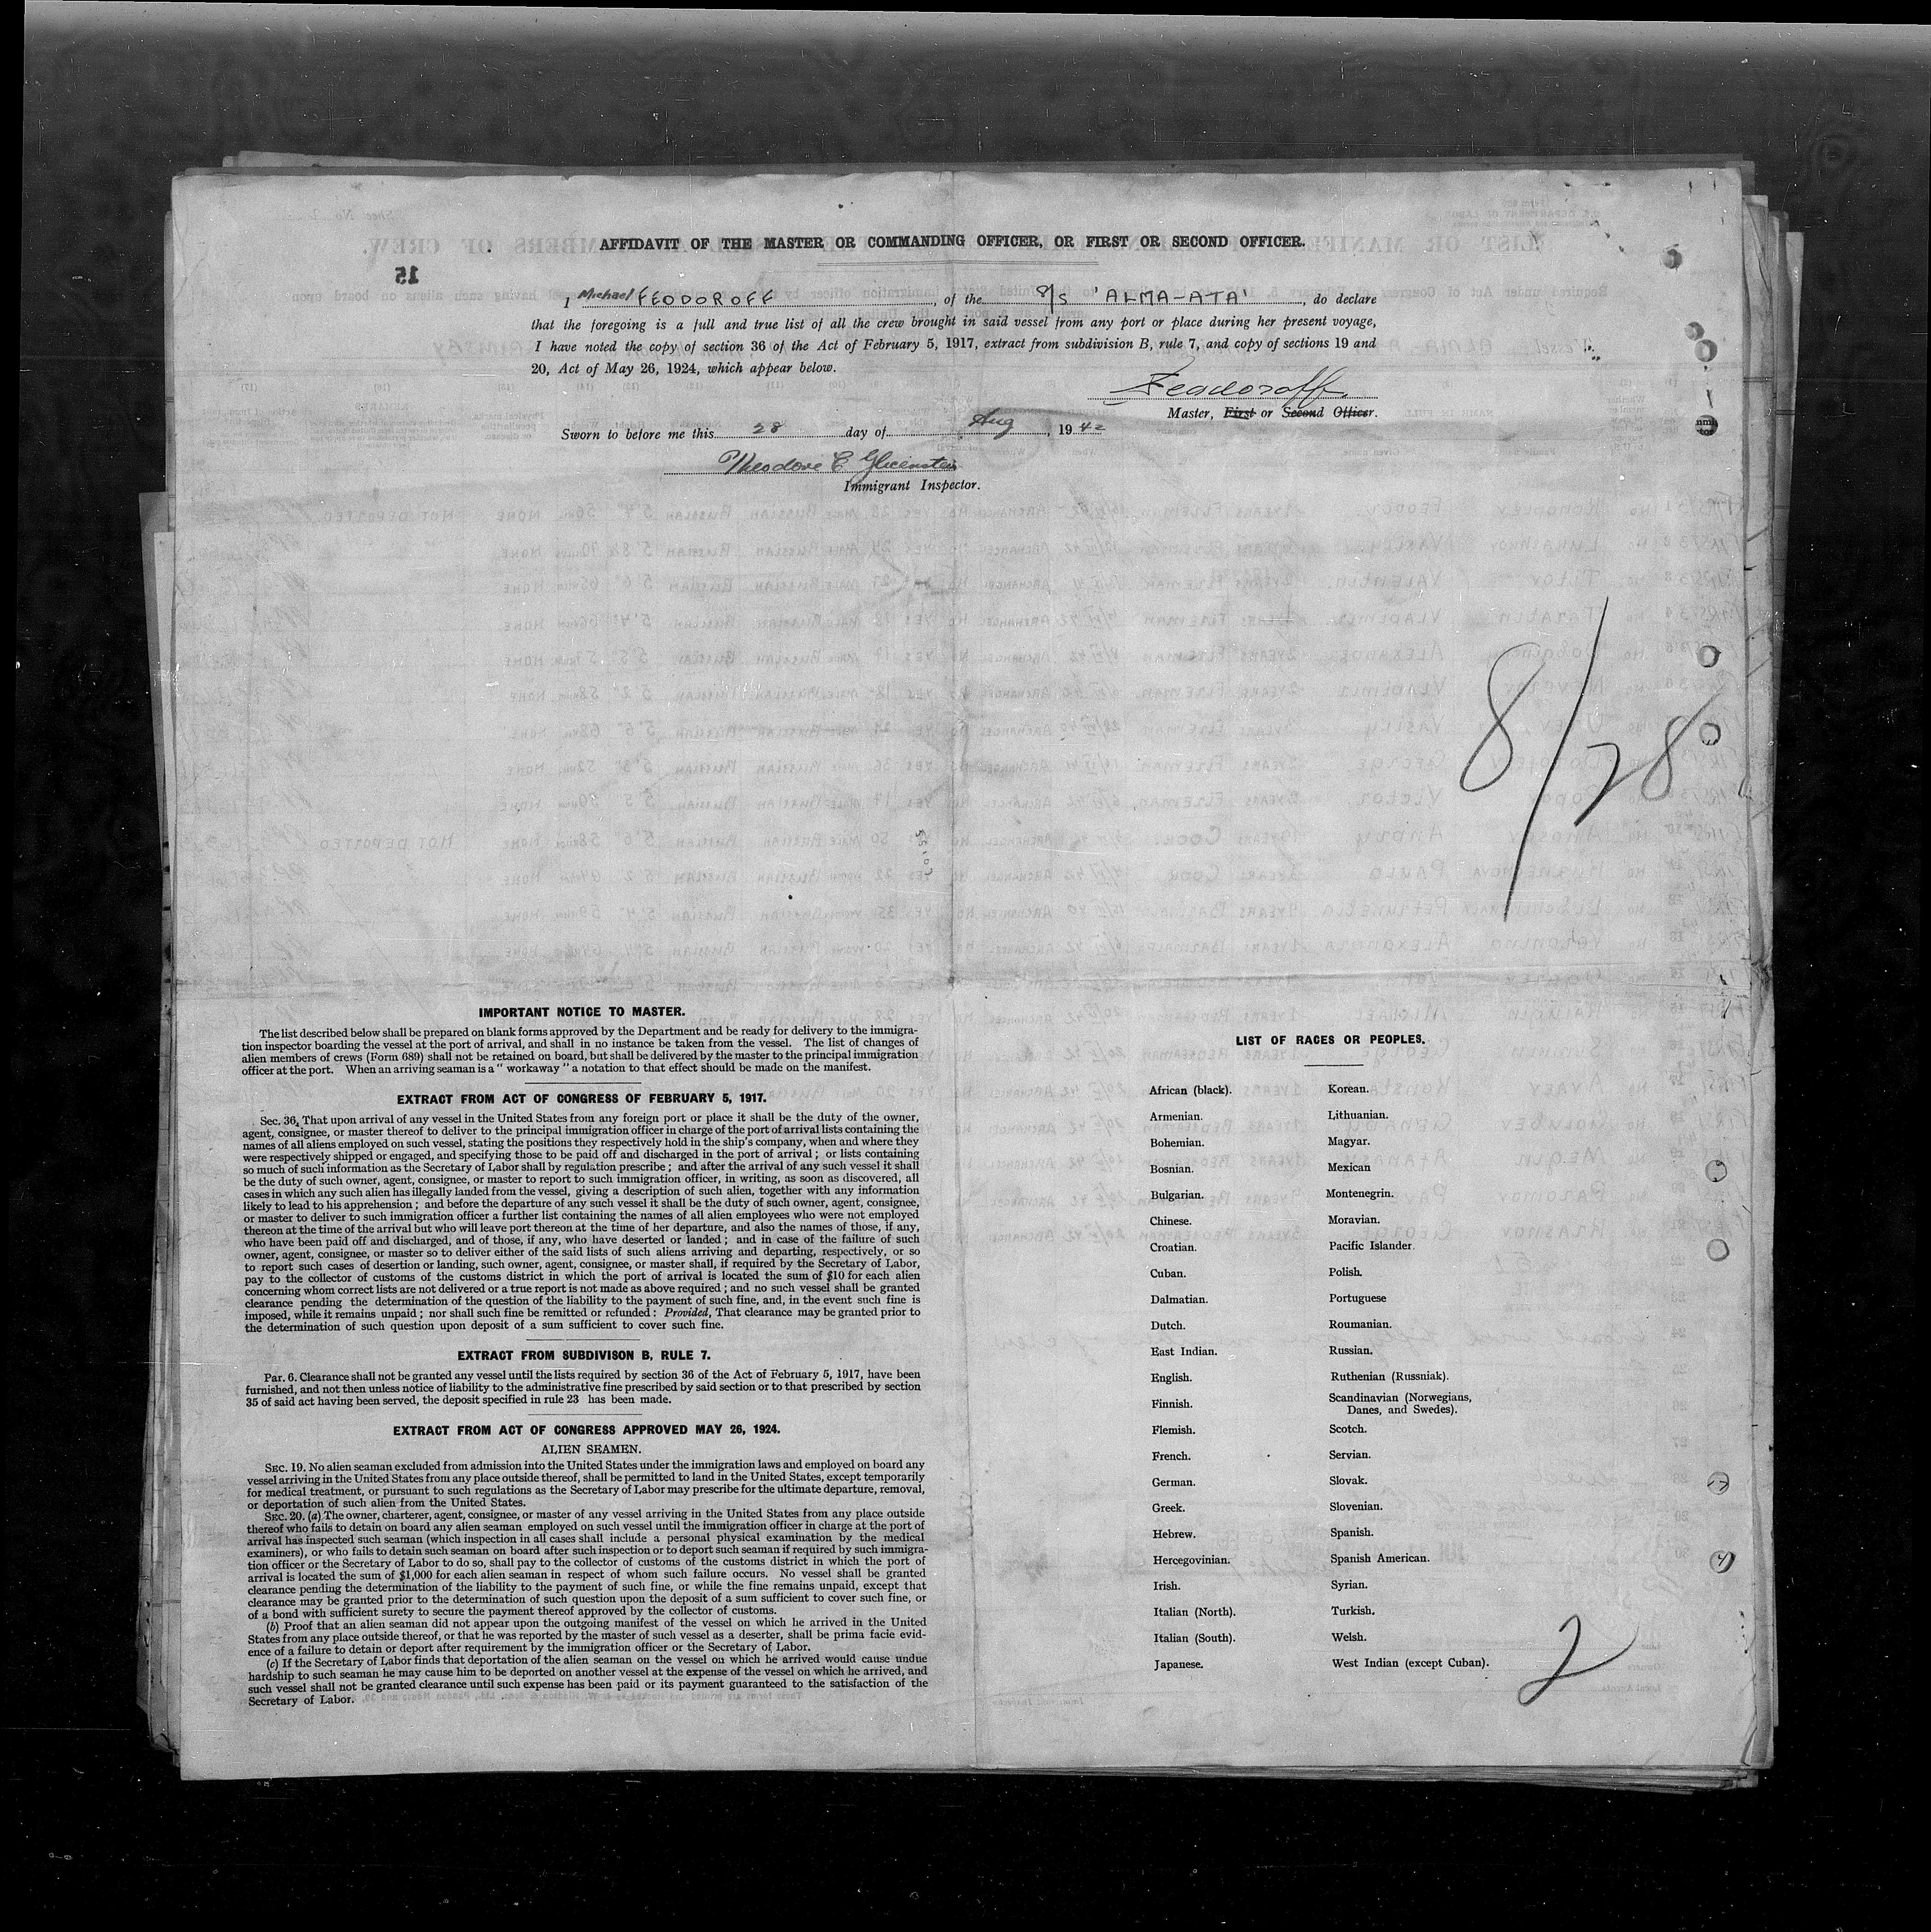 AFFIDAVIT OF THE MASTER OR COMMANDING OFFICER, OR FIRST OR SECOND OFFICER.
15
I Michael FEODOROFF, of the S/S 'ALMA-ATA', do declare
that the foregoing is a full and true list of all the crew brought in said vessel from any port or place during her present voyage,
I have noted the copy of section 36 of the Act of February 5, 1917, extract from subdivision B, rule 7, and copy of sections 19 and
20, Act of May 26, 1924, which appear below.
Feodoroff
Master, First or Second Officer.
Sworn to before me this 28 day of Aug, 1942
Theodore C
Immigrant Inspector.
8/28
IMPORTANT NOTICE TO MASTER.
The list described below shall be prepared on blank forms approved by the Department and be ready for delivery to the immigra-
tion inspector boarding the vessel at the port of arrival, and shall in no instance be taken from the vessel. The list of changes of
alien members of crews (Form 689) shall not be retained on board, but shall be delivered by the master to the principal immigration
officer at the port. When an arriving seaman is a " workaway " a notation to that effect should be made on the manifest.
EXTRACT FROM ACT OF CONGRESS OF FEBRUARY 5, 1917.
Sec. 36. That upon arrival of any vessel in the United States from any foreign port or place it shall be the duty of the owner,
agent, consignee, or master thereof to deliver to the principal immigration officer in charge of the port of arrival lists containing the
names of all aliens employed on such vessel, stating the positions they respectively hold in the ship's company, when and where they
were respectively shipped or engaged, and specifying those to be paid off and discharged in the port of arrival ; or lists containing
so much of such information as the Secretary of Labor shall by regulation prescribe ; and after the arrival of any such vessel it shall
be the duty of such owner, agent, consignee, or master to report to such immigration officer, in writing, as soon as discovered, all
cases in which any such alien has illegally landed from the vessel, giving a description of such alien, together with any information
likely to lead to his apprehension ; and before the departure of any such vessel it shall be the duty of such owner, agent, consignee,
or master to deliver to such immigration officer a further list containing the names of all alien employees who were not employed
thereon at the time of the arrival but who will leave port thereon at the time of her departure, and also the names of those, if any,
who have been paid off and discharged, and of those, if any, who have deserted or landed ; and in case of the failure of such
owner, agent, consignee, or master so to deliver either of the said lists of such aliens arriving and departing, respectively, or so
to report such cases of desertion or landing, such owner, agent, consignee, or master shall, if required by the Secretary of Labor,
pay to the collector of customs of the customs district in which the port of arrival is located the sum of $10 for each alien
concerning whom correct lists are not delivered or a true report is not made as above required ; and no such vessel shall be granted
clearance pending the determination of the question of the liability to the payment of such fine, and, in the event such fine is
imposed, while it remains unpaid ; nor shall such fine be remitted or refunded : Provided, That clearance may be granted prior to
the determination of such question upon deposit of a sum sufficient to cover such fine.
EXTRACT FROM SUBDIVISON B, RULE 7.
Par. 6. Clearance shall not be granted any vessel until the lists required by section 36 of the Act of February 5, 1917, have been
furnished, and not then unless notice of liability to the administrative fine prescribed by said section or to that prescribed by section
35 of said act having been served, the deposit specified in rule 23 has been made.
EXTRACT FROM ACT OF CONGRESS APPROVED MAY 26, 1924.
ALIEN SEAMEN.
SEC. 19. No alien seaman excluded from admission into the United States under the immigration laws and employed on board any
vessel arriving in the United States from any place outside thereof, shall be permitted to land in the United States, except temporarily
for medical treatment, or pursuant to such regulations as the Secretary of Labor may prescribe for the ultimate departure, removal,
or deportation of such alien from the United States.
SEC. 20. (a) The owner, charterer, agent, consignee, or master of any vessel arriving in the United States from any place outside
thereof who fails to detain on board any alien seaman employed on such vessel until the immigration officer in charge at the port of
arrival has inspected such seaman (which inspection in all cases shall include a personal physical examination by the medical
examiners), or who fails to detain such seaman on board after such inspection or to deport such seaman if required by such immigra-
tion officer or the Secretary of Labor to do so, shall pay to the collector of customs of the customs district in which the port of
arrival is located the sum of $1,000 for each alien seaman in respect of whom such failure occurs. No vessel shall be granted
clearance pending the determination of the liability to the payment of such fine, or while the fine remains unpaid, except that
clearance may be granted prior to the determination of such question upon the deposit of a sum sufficient to cover such fine, or
of a bond with sufficient surety to secure the payment thereof approved by the collector of customs.
(b) Proof that an alien seaman did not appear upon the outgoing manifest of the vessel on which he arrived in the United
States from any place outside thereof, or that he was reported by the master of such vessel as a deserter, shall be prima facie evid-
ence of a failure to detain or deport after requirement by the immigration officer or the Secretary of Labor.
(c) If the Secretary of Labor finds that deportation of the alien seaman on the vessel on which he arrived would cause undue
hardship to such seaman he may cause him to be deported on another vessel at the expense of the vessel on which he arrived, and
such vessel shall not be granted clearance until such expense has been paid or its payment guaranteed to the satisfaction of the
Secretary of Labor.
LIST OF RACES OR PEOPLES.
African (black).
Armenian.
Bohemian.
Bosnian.
Bulgarian.
Chinese.
Croatian.
Cuban.
Dalmatian.
Dutch.
East Indian.
English.
Finnish.
Flemish.
French.
German.
Greek.
Hebrew.
Hercegovinian.
Irish.
Italian (North).
Italian (South).
Japanese.
Korean.
Lithuanian.
Magyar.
Mexican
Montenegrin.
Moravian.
Pacific Islander
Polish.
Portuguese
Roumanian.
Russian.
Ruthenian (Russniak).
Scandinavian (Norwegians,
Danes, and Swedes).
Scotch.
Servian.
Slovak.
Slovenian.
Spanish.
Spanish American.
Syrian.
Turkish.
Welsh.
West Indian (except Cuban).
2